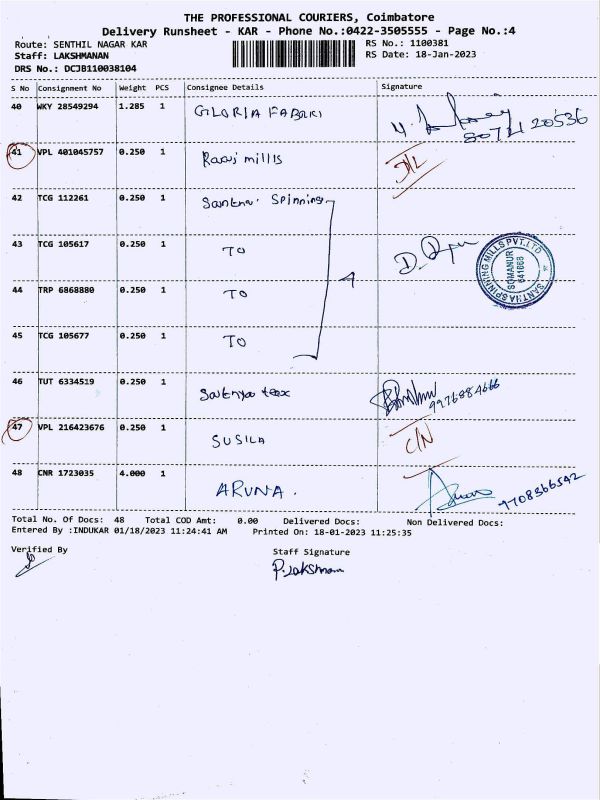 THE PROFESSIONAL COURIERS, Coimbatore
Delivery Runsheet - KAR - Phone No.:0422-3505555 - Page No.:4
Route: SENTHIL NAGAR KAR RS No.: 1100381
Staff: LAKSHMANAN RS Date: 18-Jan-2023
DRS No.: DCJB110038104
S No Consignment No Weight PCS Consignee Details Signature
40 WKY 28549294 1.285 1 GLORIA FABRRI
80714 20536
41 VPL 401045757 0.250 1 Raaj millis
42 TCG 112261 0.250 1 Spinning
43 TCG 105617 0.250 1 TO
SANTHA SPINNING MILLS PVT.LTD
SOMANUR
641668
4
44 TRP 6868880 0.250 1 TO
45 TCG 105677 0.250 1 TO
46 TUT 6334519 0.250 1 teex
9976884666
47 VPL 216423676 0.250 1 SUSILA C/N
48 CNR 1723035 4.000 1 ARUNA.
9708366542
Total No. Of Docs: 48 Total COD Amt: 0.00 Delivered Docs: Non Delivered Docs:
Entered By :INDUKAR 01/18/2023 11:24:41 AM Printed On: 18-01-2023 11:25:35
Verified By Staff Signature
P.Lakshmanan